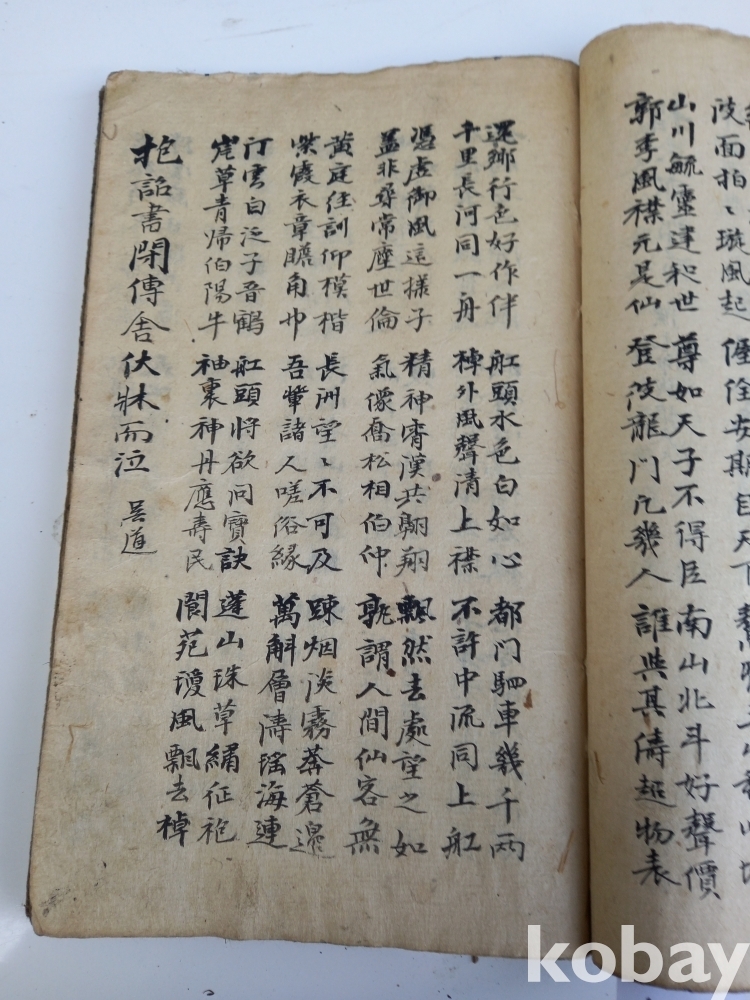 陂面拍〻璇風起 偓佺安期臣天下
山川毓靈建和世 尊如天子不得臣 南山北斗好聲價
郭季風襟元是仙 登彼龍門凡幾人 誰與其濤超物表
還鄉行色好作伴 舡頭水色白如心 都門駟車幾千兩
千里長河同一舟 棹外風聲清上襟 不許中流同上舡
憑虛御風這樣子 精神霄漢共翺翔 飄然去處望之如
蓋非尋常塵世倫 氣像喬松相伯仲 孰謂人間仙客無
黃庭往訓仰模楷 長洲望〻不可及 踈烟淡霧莽蒼邊
紫霞衣章瞻角巾 吾輩諸人嗟俗緣 萬斛層濤瑤海連
汀雲自泛子晋鶴 舡頭將欲問寶訣 蓬山珠草繡征袍
崖草青歸伯陽牛 袖裏神丹應壽民 閬苑瓊風飄去棹
抱詔書閉傳舍伏牀而泣 吳道
kobay